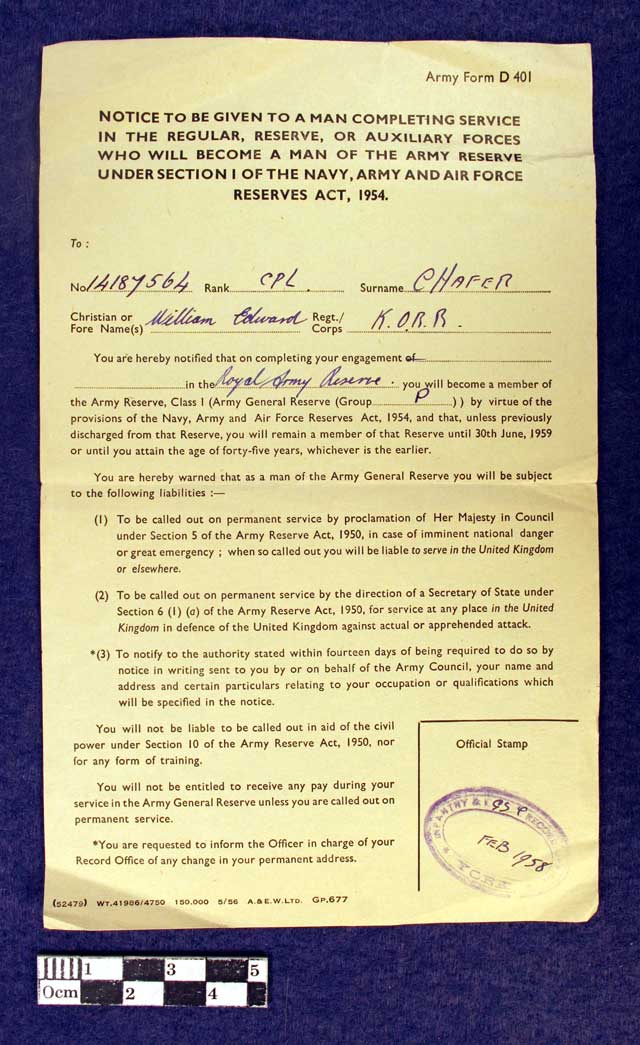 Army Form D 401
NOTICE TO BE GIVEN TO A MAN COMPLETING SERVICE
IN THE REGULAR, RESERVE, OR AUXILIARY FORCES
WHO WILL BECOME A MAN OF THE ARMY RESERVE
UNDER SECTION I OF THE NAVY, ARMY AND AIR FORCE
RESERVES ACT, 1954.
To :
No 14187564 Rank CPL. Surname CHAFER
Christian or Fore Name(s) William Edward Regt./ Corps K.O.R.R.
You are hereby notified that on completing your engagement of
in the Royal Army Reserve. you will become a member of
the Army Reserve, Class I (Army General Reserve (Group P ) ) by virtue of the
provisions of the Navy, Army and Air Force Reserves Act, 1954, and that, unless previously
discharged from that Reserve, you will remain a member of that Reserve until 30th June, 1959
or until you attain the age of forty-five years, whichever is the earlier.
You are hereby warned that as a man of the Army General Reserve you will be subject
to the following liabilities :—
(1) To be called out on permanent service by proclamation of Her Majesty in Council
under Section 5 of the Army Reserve Act, 1950, in case of imminent national danger
or great emergency ; when so called out you will be liable to serve in the United Kingdom
or elsewhere.
(2) To be called out on permanent service by the direction of a Secretary of State under
Section 6 (1) (a) of the Army Reserve Act, 1950, for service at any place in the United
Kingdom in defence of the United Kingdom against actual or apprehended attack.
*(3) To notify to the authority stated within fourteen days of being required to do so by
notice in writing sent to you by or on behalf of the Army Council, your name and
address and certain particulars relating to your occupation or qualifications which
will be specified in the notice.
You will not be liable to be called out in aid of the civil
power under Section 10 of the Army Reserve Act, 1950, nor
for any form of training.
You will not be entitled to receive any pay during your
service in the Army General Reserve unless you are called out on
permanent service.
*You are requested to inform the Officer in charge of your
Record Office of any change in your permanent address.
Official Stamp
INFANTRY & RECORD
FEB 1958
YORK
(52479) WT.41986/4750 150,000 5/56 A.&E.W.LTD. GP.677
1 3 5
0cm 2 4